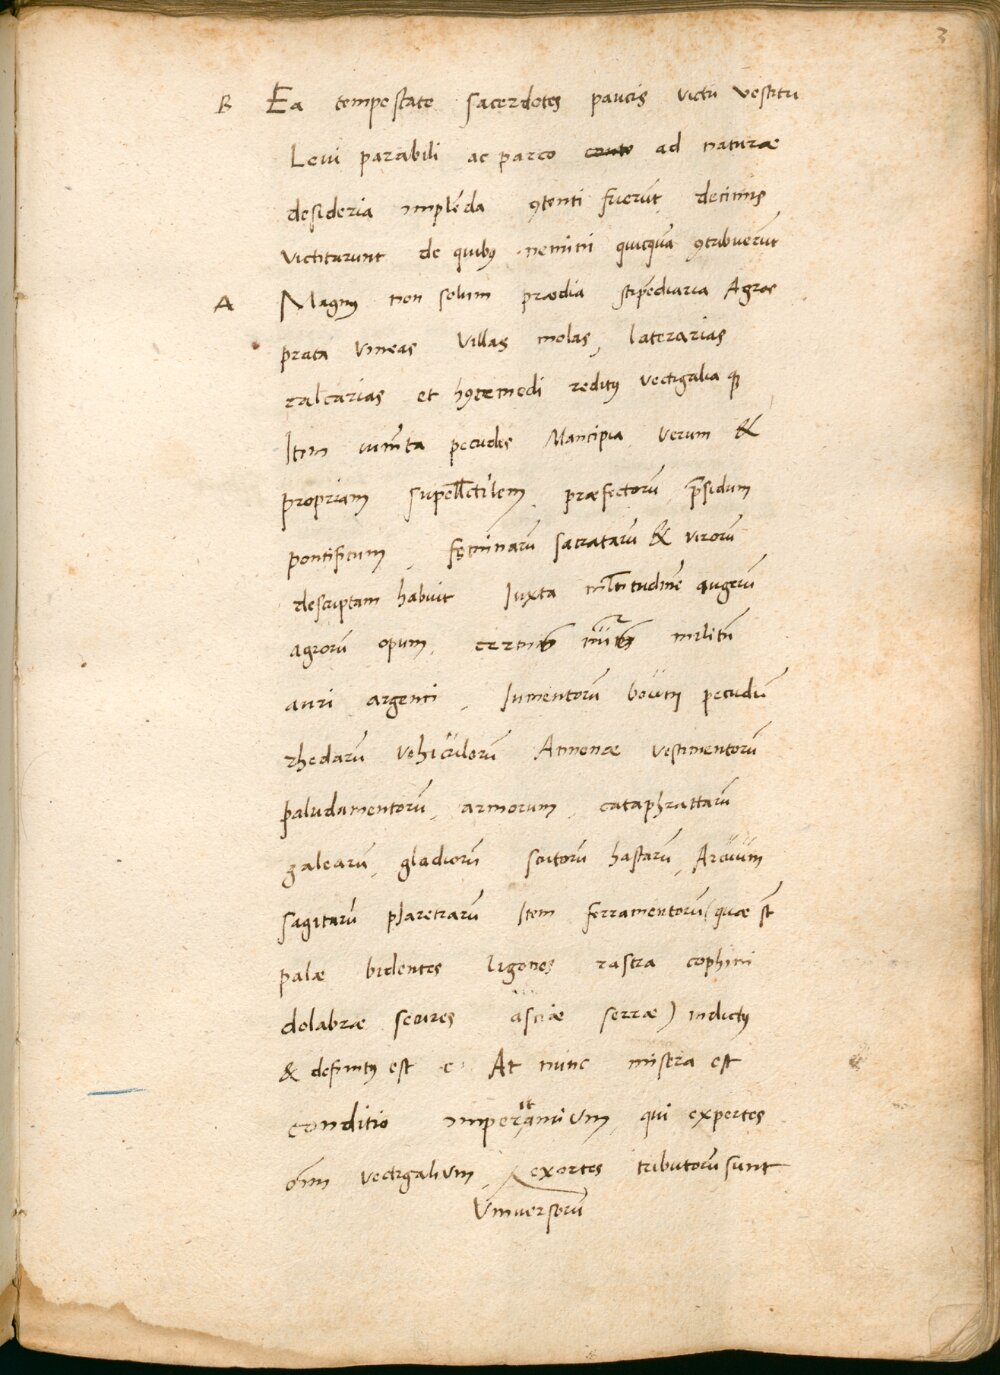 3
B Ea tempestate sacerdotes paucis victu vestitu
Levi parabili ac parco ad naturæ
desideria implēda ꝯtenti fuerūt decimis
victitarunt de quibꝰ nemini quicquā ꝯtribuerūt
A Magnꝰ non solum prædia stipēdiaria Agros
prata vineas villas molas, laterarias
calcarias et hꝰcemodi reditꝰ vectigalia qꝫ
Item iumēta pecudes Mancipia verum &
propriam supell̄ectilem præfectorū p̄sidum
pontificum, fęminarū sacratarū & virorū
descriptam habuit Iuxta ml̄titudinē
agrorū opum, militū
auri argenti, Iumentorū boum pecudū
rhedarū vehiculorū Annonæ vestimentorū
paludamentorū, armorum, cataphrattarū
galearū, gladiorū scutorū hastarū, Arcuum
sagitarū pharetrarū Item ferramentorū (quæ st̄
palæ bidentes ligones rastra cophini
dolabræ secures asciæ serræ) indictꝰ
& definitꝰ est c· At nunc misera est
conditio imperitantium, qui expertes
om̄i vectigalium, exortes tributorū sunt
Vniversorū